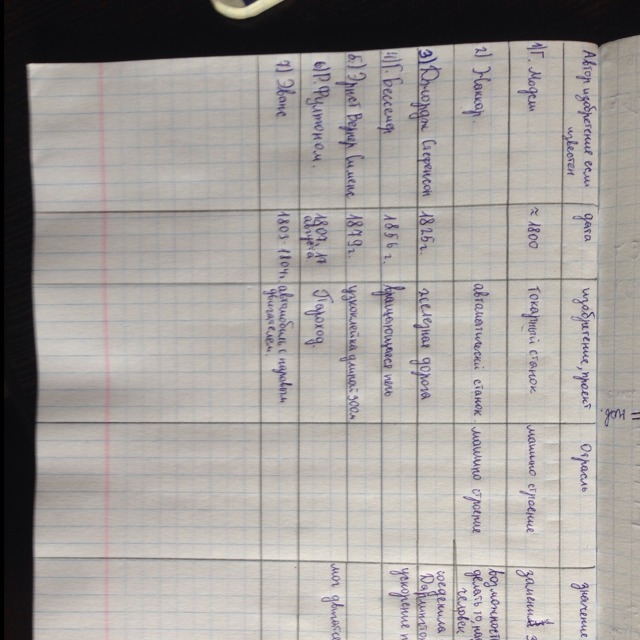 Автор изобретение если известен
дата
изобретение, проект
Отрасль
значение
1) Г. Модсли
≈ 1800
токарный станок
машино строение
2)
автоматический станок
машино строение
возможность
делать 10, на
человек
3) Джордж Стефенсон
1825г.
железная дорога
соединила
4) Г. Бессемер
1856 г.
вращающаяся печь
ускорение п
5) Эрнст Вернер Сименс
1879г.
узкоколейка длиной 300м
6) Р. Фултоном.
1807. 17
августа
Пароход.
мог двигаться
7) Эванс
1803-1804г.
автомобиль с паровым
двигателем